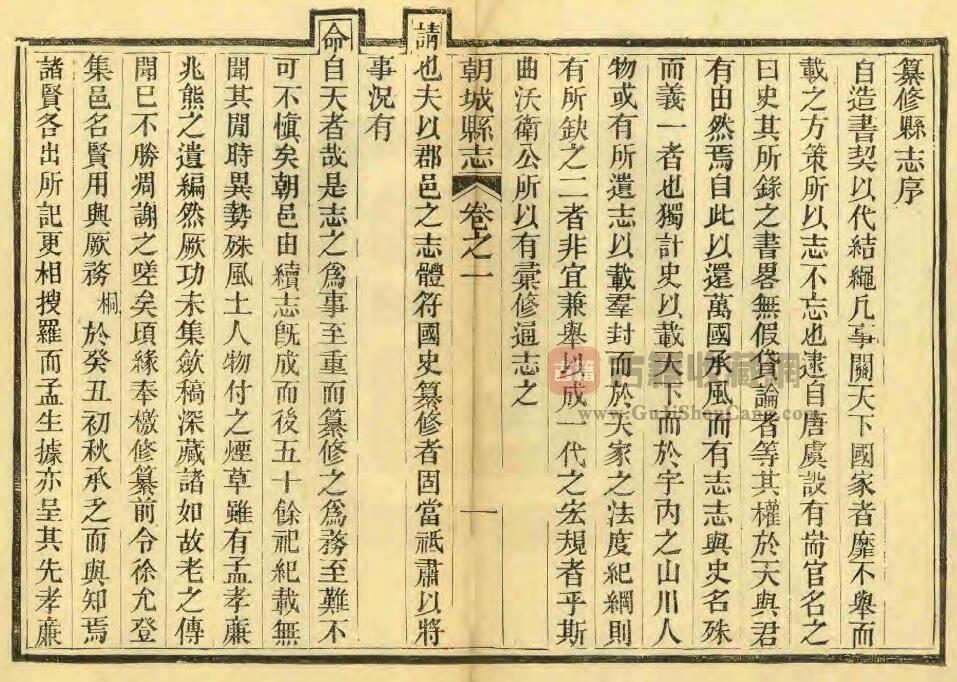 纂修縣志序
自造書契以代結繩凡事關天下國家者靡不舉而
載之方策所以志不忘也逮自唐虞設有耑官名之
曰史其所錄之書畧無假貸論者等其權於天與君
有由然焉自此以還萬國承風而有志志與史名殊
而義一者也獨計史以載天下而於宇內之山川人
物或有所遺志以載羣封而於天家之法度紀綱則
有所缺之二者非宜兼舉以成一代之宏規者乎斯
曲沃衛公所以有彙修通志之
朝城縣志 卷之一 一
請也夫以郡邑之志體符國史纂修者固當祗肅以將
事況有
命自天者哉是志之為事至重而纂修之為務至難不
可不慎矣朝邑由續志旣成而後五十餘祀紀載無
聞其閒時異勢殊風土人物付之煙草雖有孟孝廉
兆熊之遺編然厥功未集斂稿深藏諸如故老之傳
聞已不勝凋謝之嗟矣頃緣奉檄修纂前令徐允登
集邑名賢用興厥務桐於癸丑初秋承乏而與知焉
諸賢各出所記更相搜羅而孟生據亦呈其先孝廉
古籍收藏網
www.GuJiShouCang.com